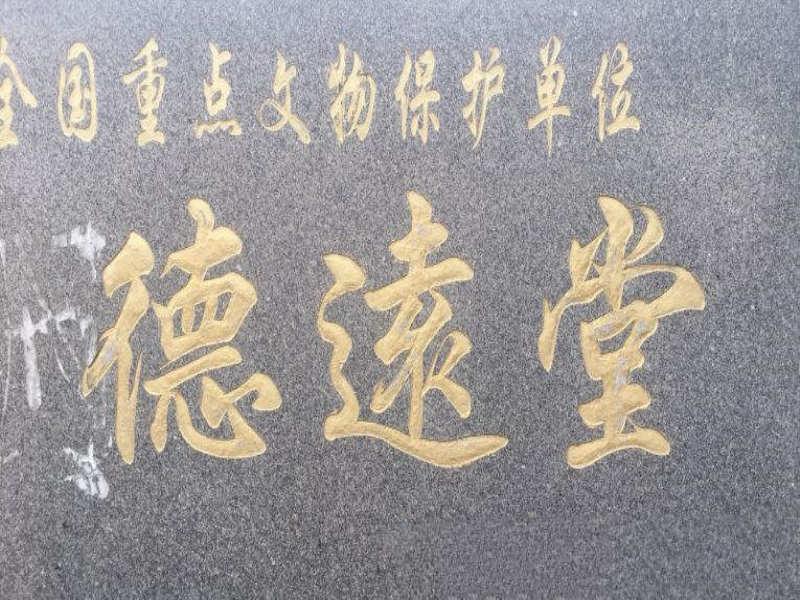 全国重点文物保护单位
德遠堂